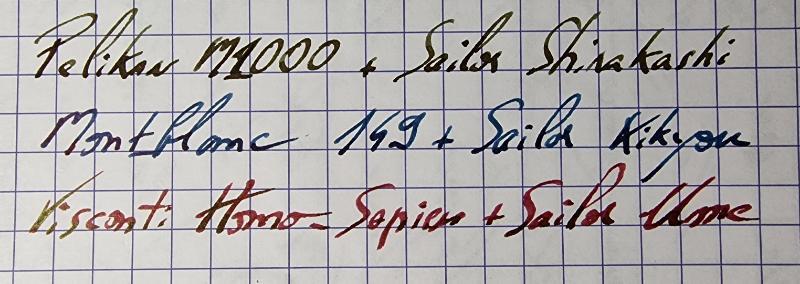 Pelikan M1000 + Sailor Shirakashi
Montblanc 149 + Sailor Kikyou
Visconti Homo-Sapien + Sailor Ume